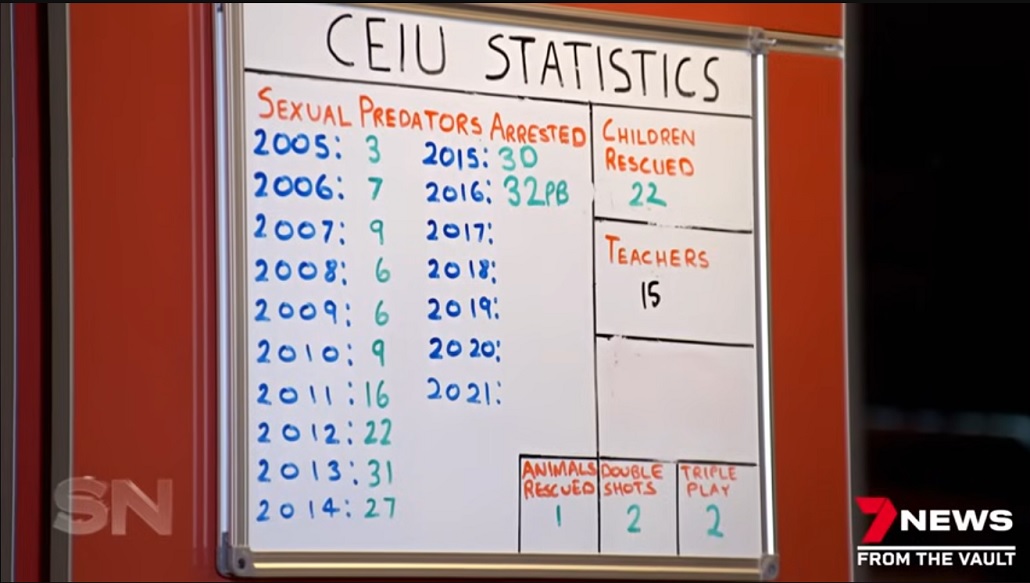 CEIU STATISTICS
SEXUAL PREDATORS ARRESTED
2005: 3
2006: 7
2007: 9
2008: 6
2009: 6
2010: 9
2011: 16
2012: 22
2013: 31
2014: 27
2015: 30
2016: 32PB
2017:
2018:
2019:
2020:
2021:
CHILDREN
RESCUED
22
TEACHERS
15
ANIMALS
RESCUED
1
DOUBLE
SHOTS
2
TRIPLE
PLAY
2
SN
7NEWS
FROM THE VAULT